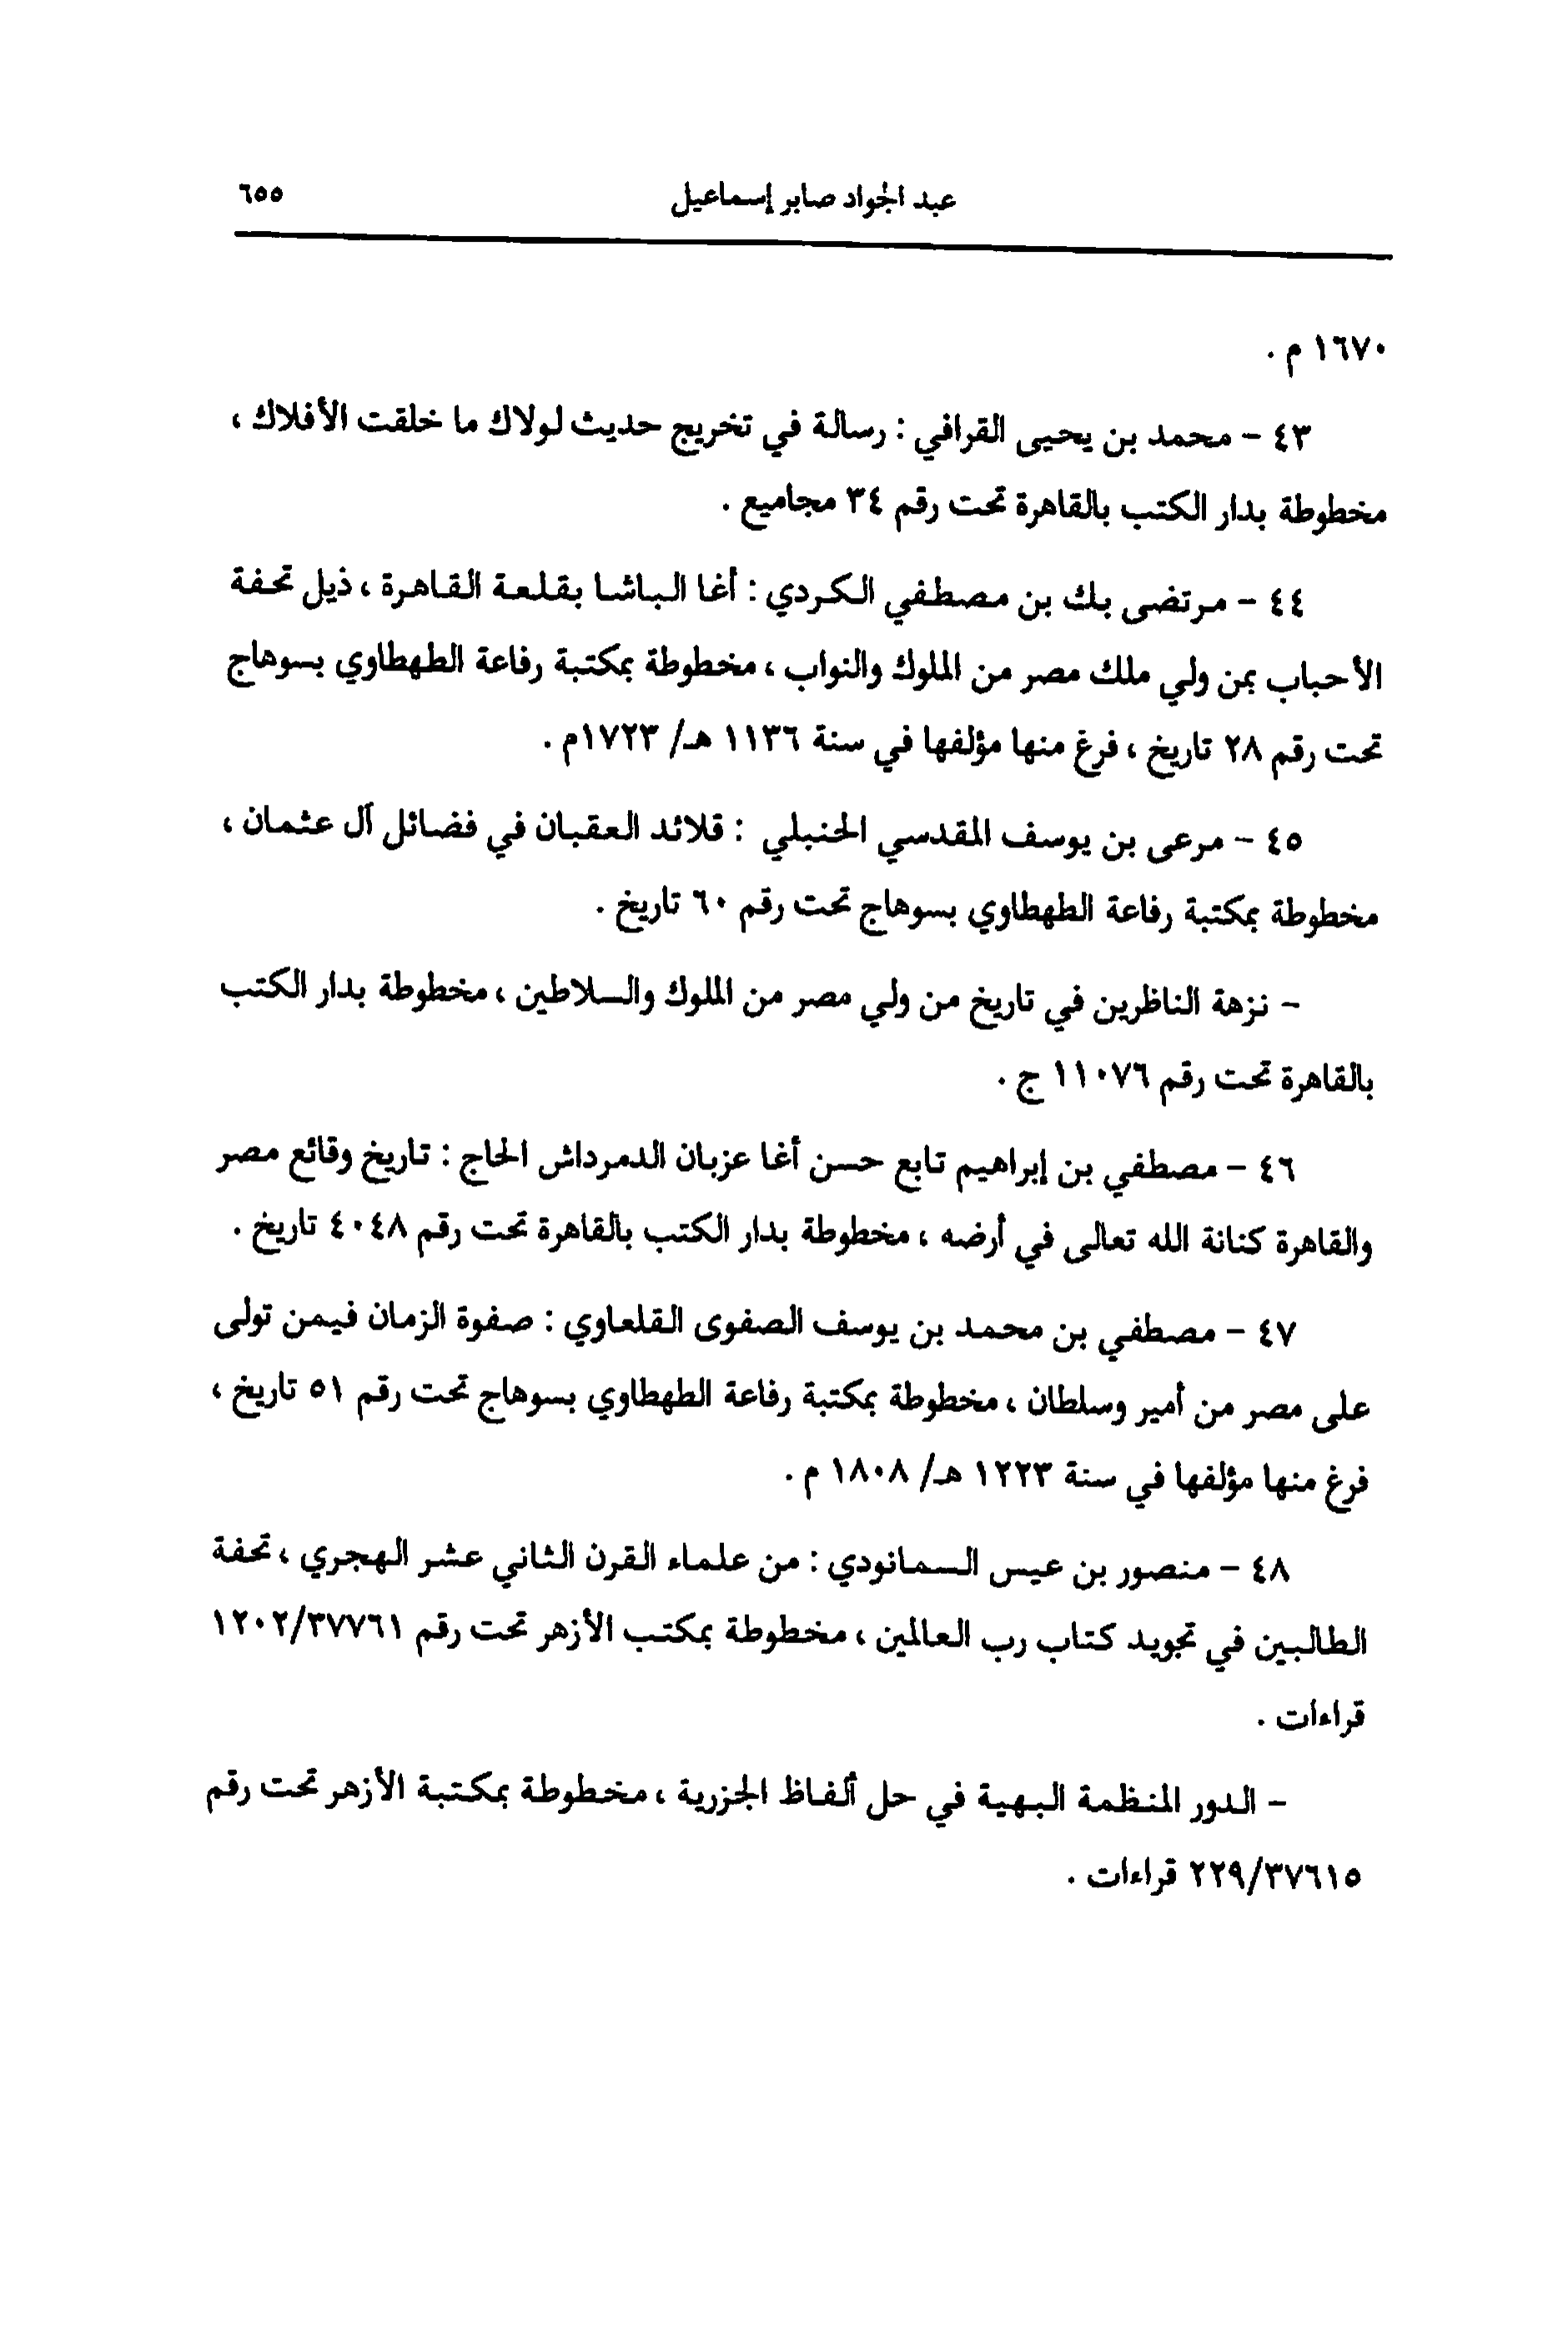 عبد الجواد صابر إسماعيل ٦٥٥
١٦٧٠ م .
٤٣ - محمد بن يحيى القرافي : رسالة في تخريج حديث لولاك ما خلقت الأفلاك ،
مخطوطة بدار الكتب بالقاهرة تحت رقم ٣٤ مجاميع .
٤٤ - مرتضى بك بن مصطفي الكردي : أغا الباشا بقلعة القاهرة ، ذيل تحفة
الأحباب بمن ولي ملك مصر من الملوك والنواب ، مخطوطة بمكتبة رفاعة الطهطاوي بسوهاج
تحت رقم ٢٨ تاريخ ، فرغ منها مؤلفها في سنة ١١٣٦ هـ/ ١٧٢٣م .
٤٥ - مرعى بن يوسف المقدسي الحنبلي : قلائد العقبان في فضائل آل عثمان ،
مخطوطة بمكتبة رفاعة الطهطاوي بسوهاج تحت رقم ٦٠ تاريخ .
- نزهة الناظرين في تاريخ من ولي مصر من الملوك والسلاطين ، مخطوطة بدار الكتب
بالقاهرة تحت رقم ١١٠٧٦ ج .
٤٦ - مصطفي بن إبراهيم تابع حسن أغا عزبان الدمرداش الحاج : تاريخ وقائع مصر
والقاهرة كنانة الله تعالى في أرضه ، مخطوطة بدار الكتب بالقاهرة تحت رقم ٤٠٤٨ تاريخ .
٤٧ - مصطفي بن محمد بن يوسف الصفوى القلعاوي : صفوة الزمان فيمن تولى
على مصر من أمير وسلطان ، مخطوطة بمكتبة رفاعة الطهطاوي بسوهاج تحت رقم ٥١ تاريخ ،
فرغ منها مؤلفها في سنة ١٢٢٣ هـ/ ١٨٠٨ م .
٤٨ - منصور بن عيس السمانودي : من علماء القرن الثاني عشر الهجري ، تحفة
الطالبين في تجويد كتاب رب العالمين ، مخطوطة بمكتب الأزهر تحت رقم ١٢٠٢/٣٧٧٦١
قراءات .
- الدور المنظمة البهية في حل ألفاظ الجزرية ، مخطوطة بمكتبة الأزهر تحت رقم
٢٢٩/٣٧٦١٥ قراءات .